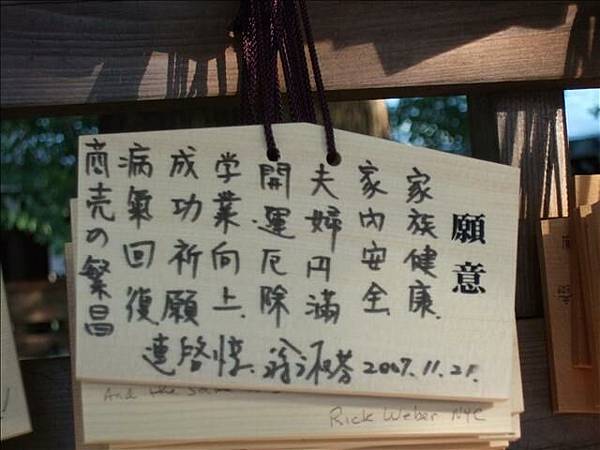 願意
家族健康
家內安全
夫婦円満
開運厄除
学業向上
成功祈願
病氣回復
商売の繁昌
連啓
2007.11.21.
And the same
Rick Weber NYC